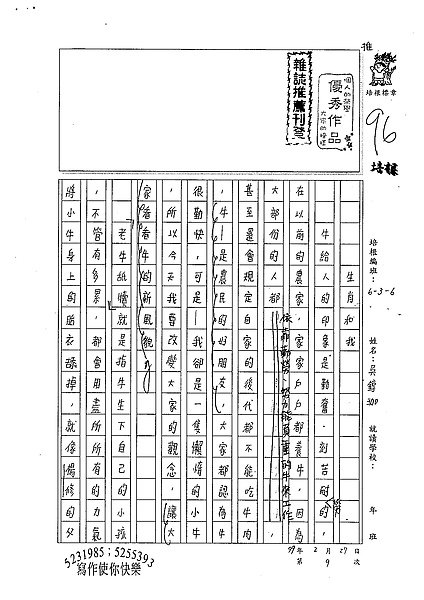 推
培根楷章
個人的榮譽
優秀作品
大家的時禮
雜誌推薦刊登
96
培根
培根編班：6-3-6
姓名：吳錡 308
就讀學校：
年 班
99年 2月 27日
第 9 次
生肖和我
牛給人的印象是勤奮、刻苦耐勞的
在以前的農家，家家戶戶都養牛，因為，
大部份的人都依靠勤勞、努力、能負重的牛來工作
甚至還會規定自家的後代都不能吃牛肉，
，牛—是農民的好朋友，大家都認為牛
很勤快，可是—我卻是一隻懶惰的小牛
，所以今天我要改變大家的觀念，讓大
家看看牛的新風貌。
「老牛舐犢」就是指牛生下自己的小孩
，不管有多累，都會用盡所所有的力氣
將小牛身上的胎衣舔掉，就像楊修的父
5231985；5255393
寫作使你快樂